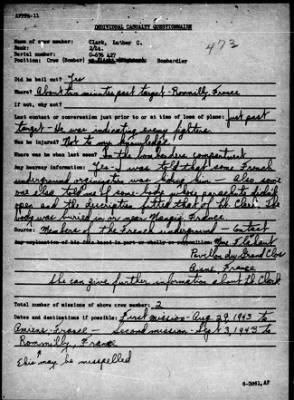 AFPPA-11
INDIVIDUAL CASUALTY QUESTIONNAIRE
Name of crew member: Clark, Luther C.
Rank: 2/Lt.
Serial number: O-675 427
Position: Crew (Bomber) Bombardier
473
Did he bail out? Yes
Where? About ten minutes past target - Rommilly, France
If not, why not?
Last contact or conversation just prior to or at time of loss of plane: just past
target - He was indicating enemy fighters.
Was he injured? Not to my knowledge
Where was he when last seen? In the bombardiers compartment
Any hearsay information: Yes - I was told that some French
underground organization was hiding him. Also some
one else told me of some body whose parachute didn't
open and the description fitted that of Lt. Clark. The
body was buried in or near Mangis, France
Source: Members of the French underground - Contact
Any explanation of his fate based in part or wholly on supposition: Mme
Pavillon du Grand Clos
Aisne France
She can give further information about Lt. Clark
Total number of missions of above crew member: 2
Dates and destinations if possible: First mission - Aug 29, 1943 to
Amiens - France - Second mission - Sept 3, 1943 to
Rommilly, France
This may be misspelled
6-3861,AF